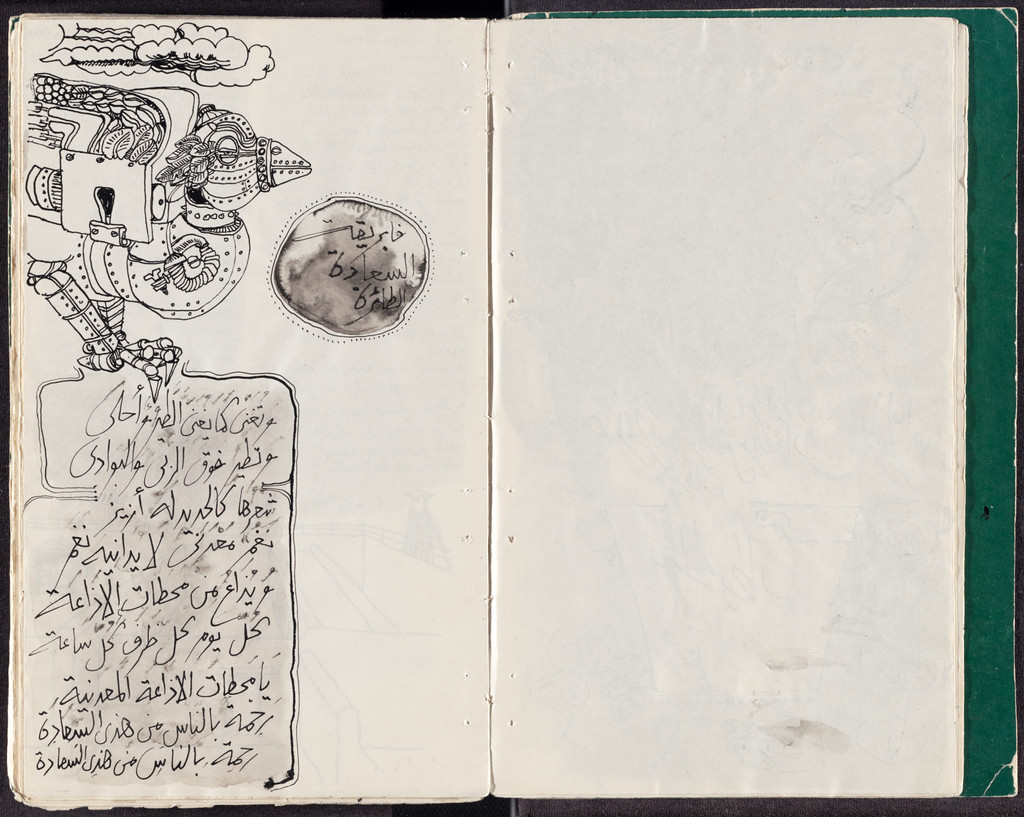 فابريقة
السعادة
الطائرة
وتغني كما يغني الطير وأحلى
وتطير فوق الربى والبوادي
شعرها كالحديد له أزيز
نغم معدني لا يدانيه نغم
ويُذاع من محطات الإذاعة
كل يوم كل ظرف كل ساعة
يا محطات الاذاعة المعدنية
رحمة بالناس من هذي السعادة
رحمة بالناس من هذي السعادة